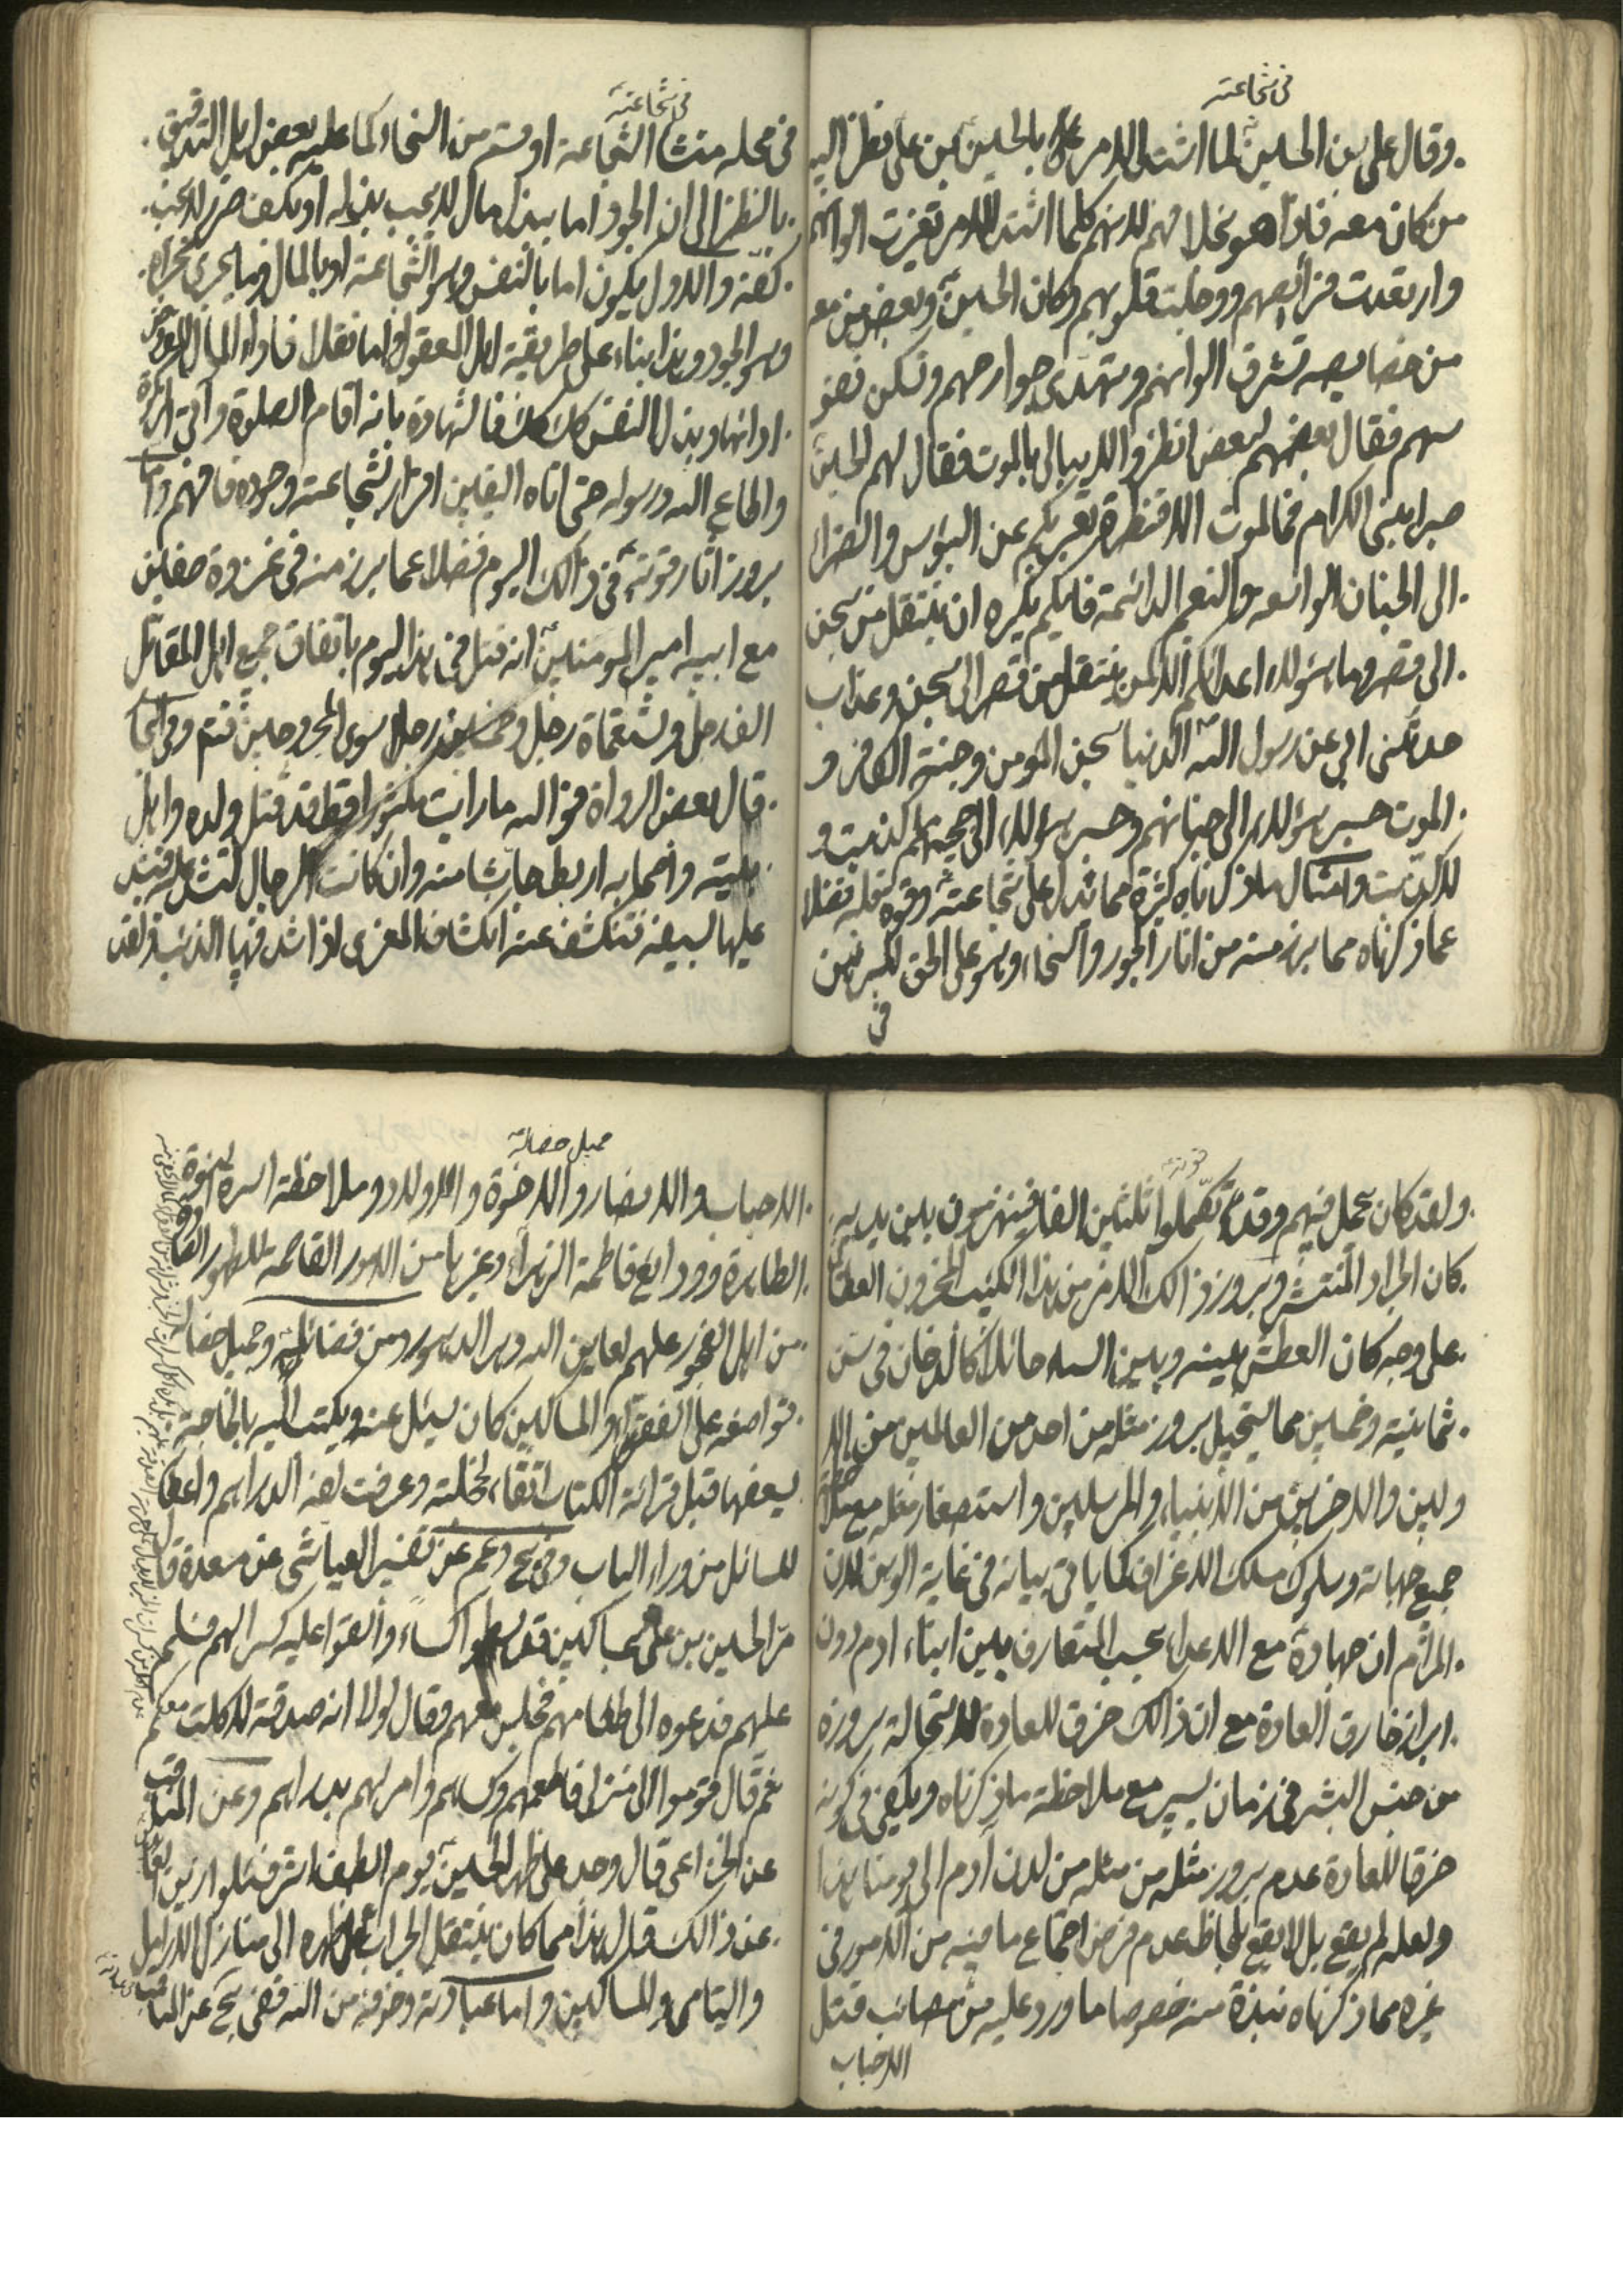 في شجاعته
وقال علي بن الحسين لما اشتد الامر بالحسين بن علي نظر اليه
من كان معه فاذا هو بخلافهم لانهم كلما اشتد الامر تغيرت الوانهم
وارتعدت فرائصهم ووجلت قلوبهم وكان الحسين وبعض من معه
من خصايصه تشرق الوانهم وتهدى جوارحهم وتسكن نفو
سهم فقال بعضهم لبعض انظروا لا يبالي بالموت فقال لهم الحسين
صبرا بني الكرام فما الموت الا قنطرة تعبر بكم عن البؤس والضراء
الى الجنان الواسعة والنعم الدائمة فايكم يكره ان ينتقل من سجن
الى قصر وما هؤلاء اعدائكم الا كمن ينتقل من قصر الى سجن وعذاب
حدثني ابي عن رسول الله الدنيا سجن المومن وجنة الكافر و
الموت جسر هؤلاء الى جنانهم وجسر هؤلاء الى جحيمهم ما كذبت و
لا كذبت وامثال ما ذكرناه كثيرة مما تدل على شجاعته وقوة قلبه فضلا
عما ذكرناه مما برز منه من اثار الجود والسخاء وهو على الحق المبين
في
في شجاعته
في محله منشا الشجاعة او قسم من السخاء كما عليه بعض اهل التدقيق
بالنظر الى ان الجود اما ببذل مال لا يجب بذله او بكف ضرر لا يجب
كفه والاول يكون اما بالنفس وهو الشجاعة او بالمال وما يجري مجراه
وهو الجود وهذا بناء على طريقة اهل العقول واما نقلا فاداء المال
اداؤها وبذل النفس كك فالشهادة بانه اقام الصلوة وآتى الزكوة
واطاع الله ورسوله حتى اتاه اليقين اقرار بشجاعته وجوده فافهم واما
بروز آثار قوته في ذالك اليوم فضلا عما برز منه في غزوة صفين
مع ابيه امير المومنين انه قتل في هذا اليوم باتفاق جميع اهل المقاتل
الف رجل وتسعمائة رجل وخمسين رجلا سوى المجروحين
قال بعض الرواة فوالله ما رايت مكثورا قط قد قتل ولده واهل
بيته واصحابه اربط جاشا منه وان كانت الرجال لتشد عليه فيشد
عليها بسيفه فتنكشف عنه انكشاف المعزى اذا شد فيها الذئب ولقد
ولقد كان يحمل فيهم وقد تكملوا ثلثين الفا فينهزمون بين يديه
كان الجراد المنتشر وبروز ذالك الامر من هذا الكئيب المحزون العطشان
على وجه كان العطش بينه وبين السماء حائلا كالدخان في سن
ثمانية وخمسين مما يستحيل بروز مثله من احد من العالمين من الا
ولين والاخرين من الانبياء والمرسلين واستصغار مثله مع ملاحظة
جميع جهاته وسلوك مسلك الاغراف كما ياتي بيانه في غاية الوهن لان
المرام ان جهاده مع الاعداء بحسب المتعارف بين ابناء ادم دون
ابراز خارق العادة مع ان ذالك خرق للعادة لاستحالة بروزه
من جنس البشر في زمان يسير مع ملاحظة ما ذكرناه ويكفي في كونه
خرقا للعادة عدم بروز مثله من مثله من لدن آدم الى يومنا هذا
ولعله لم يقع بل لا يقع بلحاظ عدم فرض اجتماع ما فيه من الامور في
غيره مما ذكرناه نبذة منه خصوصا ما ورد عليه من مصائب قتل
الاحباب
جميل خصاله
الاحباب والانصار والاخوة والاولاد وملاحظة اسرة النبوة
الطاهرة وودائع فاطمة الزهراء وغيرها من الامور القاصمة للظهور
من اهل الفجور عليهم لعاين الله دهر الدهور ومن فضائله وجميل خصاله
تواضعه على الفقراء والمساكين كان يسئل عنه ويكتب اليه بالحاجة
يعضها قبل قرائة الكتاب اتقاء لخجلته وعرضت لهذه الدراهم واعطى
للسائل من وراء الباب وفي بح وعم عن تفسير العياشي عن مسعدة قال
مر الحسين بن علي بمساكين قد بسطوا كساء والقوا عليه كسرا لهم فسلم
عليهم فدعوه الى طعامهم فجلس معهم وقال لولا انه صدقة لاكلت معكم
ثم قال قوموا الى منزلي فاطعمهم وكساهم وامر لهم بدراهم وعن المناقب
عن الخزاعي قال وجد على ظهر الحسين يوم الطف اثر فسئلوا زين
عن ذالك فقال هذا مما كان ينقل الجراب على ظهره الى منازل الارامل
واليتامى والمساكين واما عبادته وخوفه من الله ففي بح عن المناقب